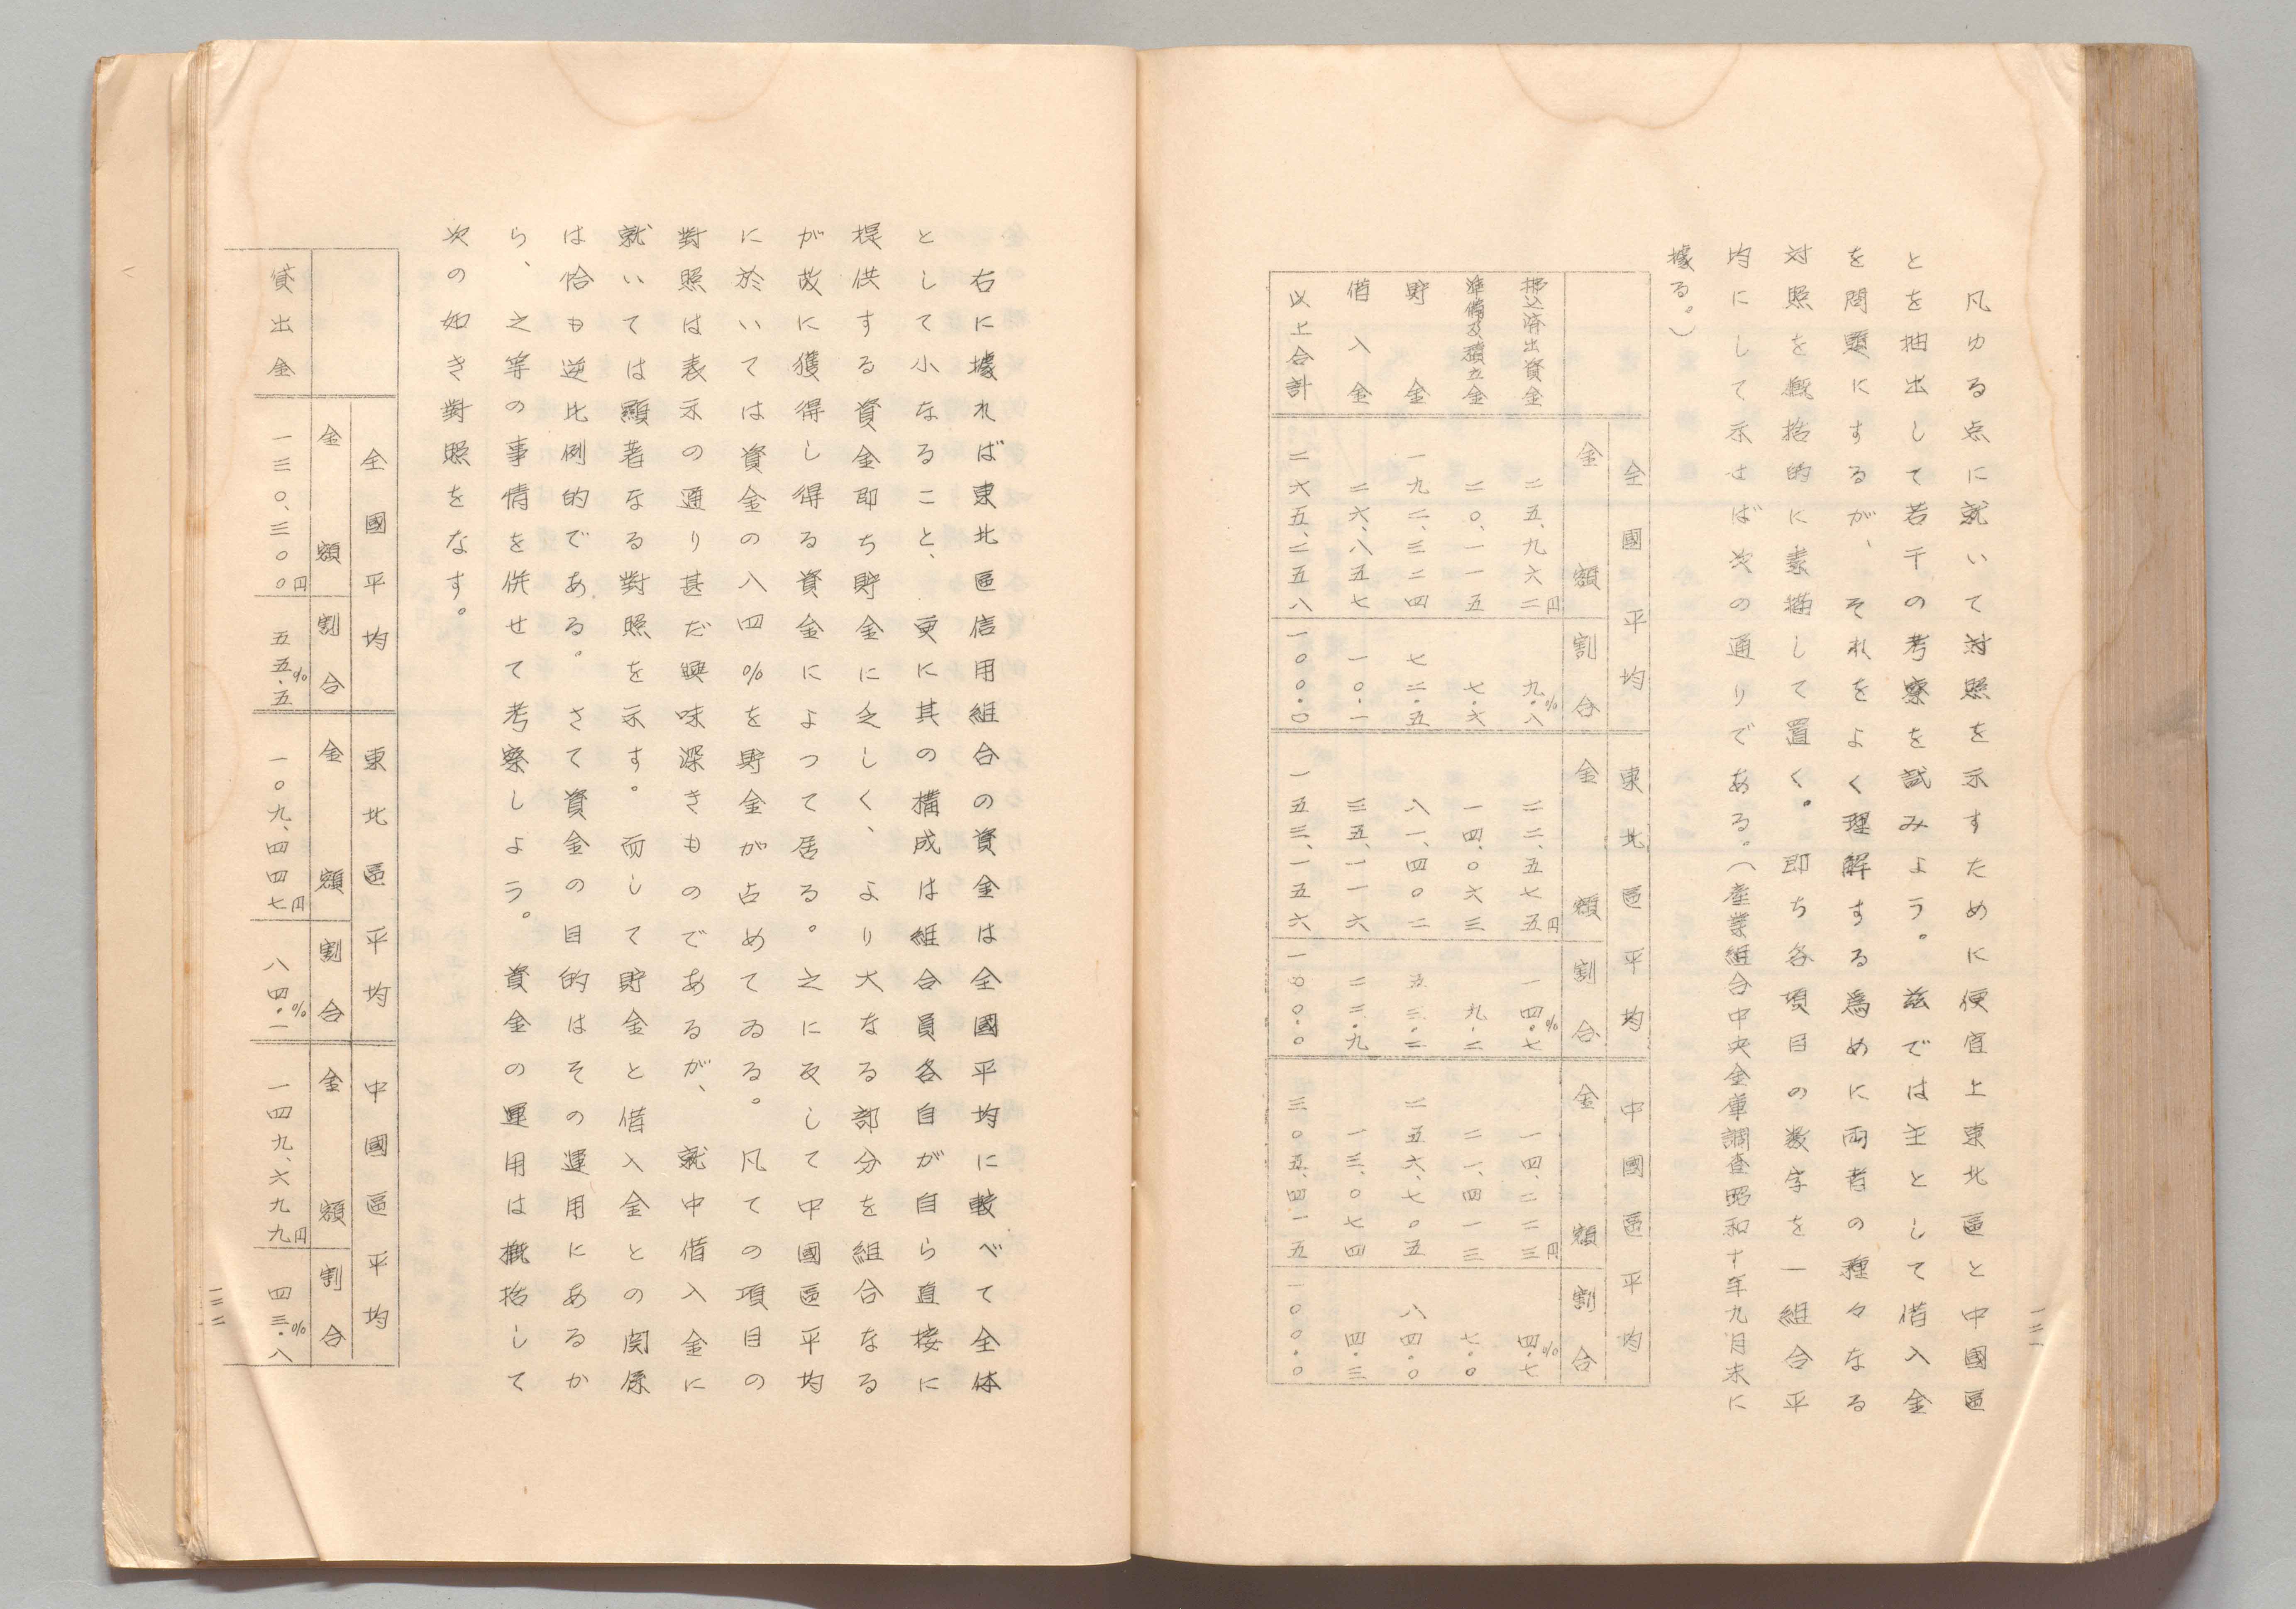 一二一
凡ゆる点に就いて対照を示すために便宜上東北區と中國區
とを抽出して若干の考察を試みよう。茲では主として借入金
を問題にするが、それをよく理解する爲めに両者の種々なる
対照を概括的に素描して置く。即ち各項目の数字を一組合平
均にして示せば次の通りである。(産業組合中央金庫調査昭和十年九月末に
據る。)
全國平均 東北區平均 中國區平均
金額 割合 金額 割合 金額 割合
拂込済出資金 二五、九六二円 九・八% 二二、五七五円 一四・七% 一四、二二三円 四・七%
準備及積立金 二〇、一一五 七・六 一四、〇六三 九・二 二一、四一三 七・〇
貯金 一九二、三二四 七二・五 八一、四〇二 五三・二 二五六、七〇五 八四・〇
借入金 二六、八五七 一〇・一 三五、一一六 二二・九 一三、〇七四 四・三
以上合計 二六五、二五八 一〇〇・〇 一五三、一五六 一〇〇・〇 三〇五、四一五 一〇〇・〇
右に據れば東北區信用組合の資金は全國平均に較べて全体
として小なること、更に其の構成は組合員各自が自ら直接に
提供する資金即ち貯金に乏しく、より大なる部分を組合なる
が故に獲得し得る資金によつて居る。之に反して中國區平均
に於いては資金の八四%を貯金が占めてゐる。凡ての項目の
對照は表示の通り甚だ興味深きものであるが、就中借入金に
就いては顯著なる對照を示す。而して貯金と借入金との関係
は恰も逆比例的である。さて資金の目的はその運用にあるか
ら、之等の事情を併せて考察しよう。資金の運用は概括して
次の如き對照をなす。
全國平均 東北區平均 中國區平均
金額 割合 金額 割合 金額 割合
貸出金 一三〇、三〇〇円 五五・五% 一〇九、四四七円 八四・一% 一四九、六九九円 四三・八%
一二二